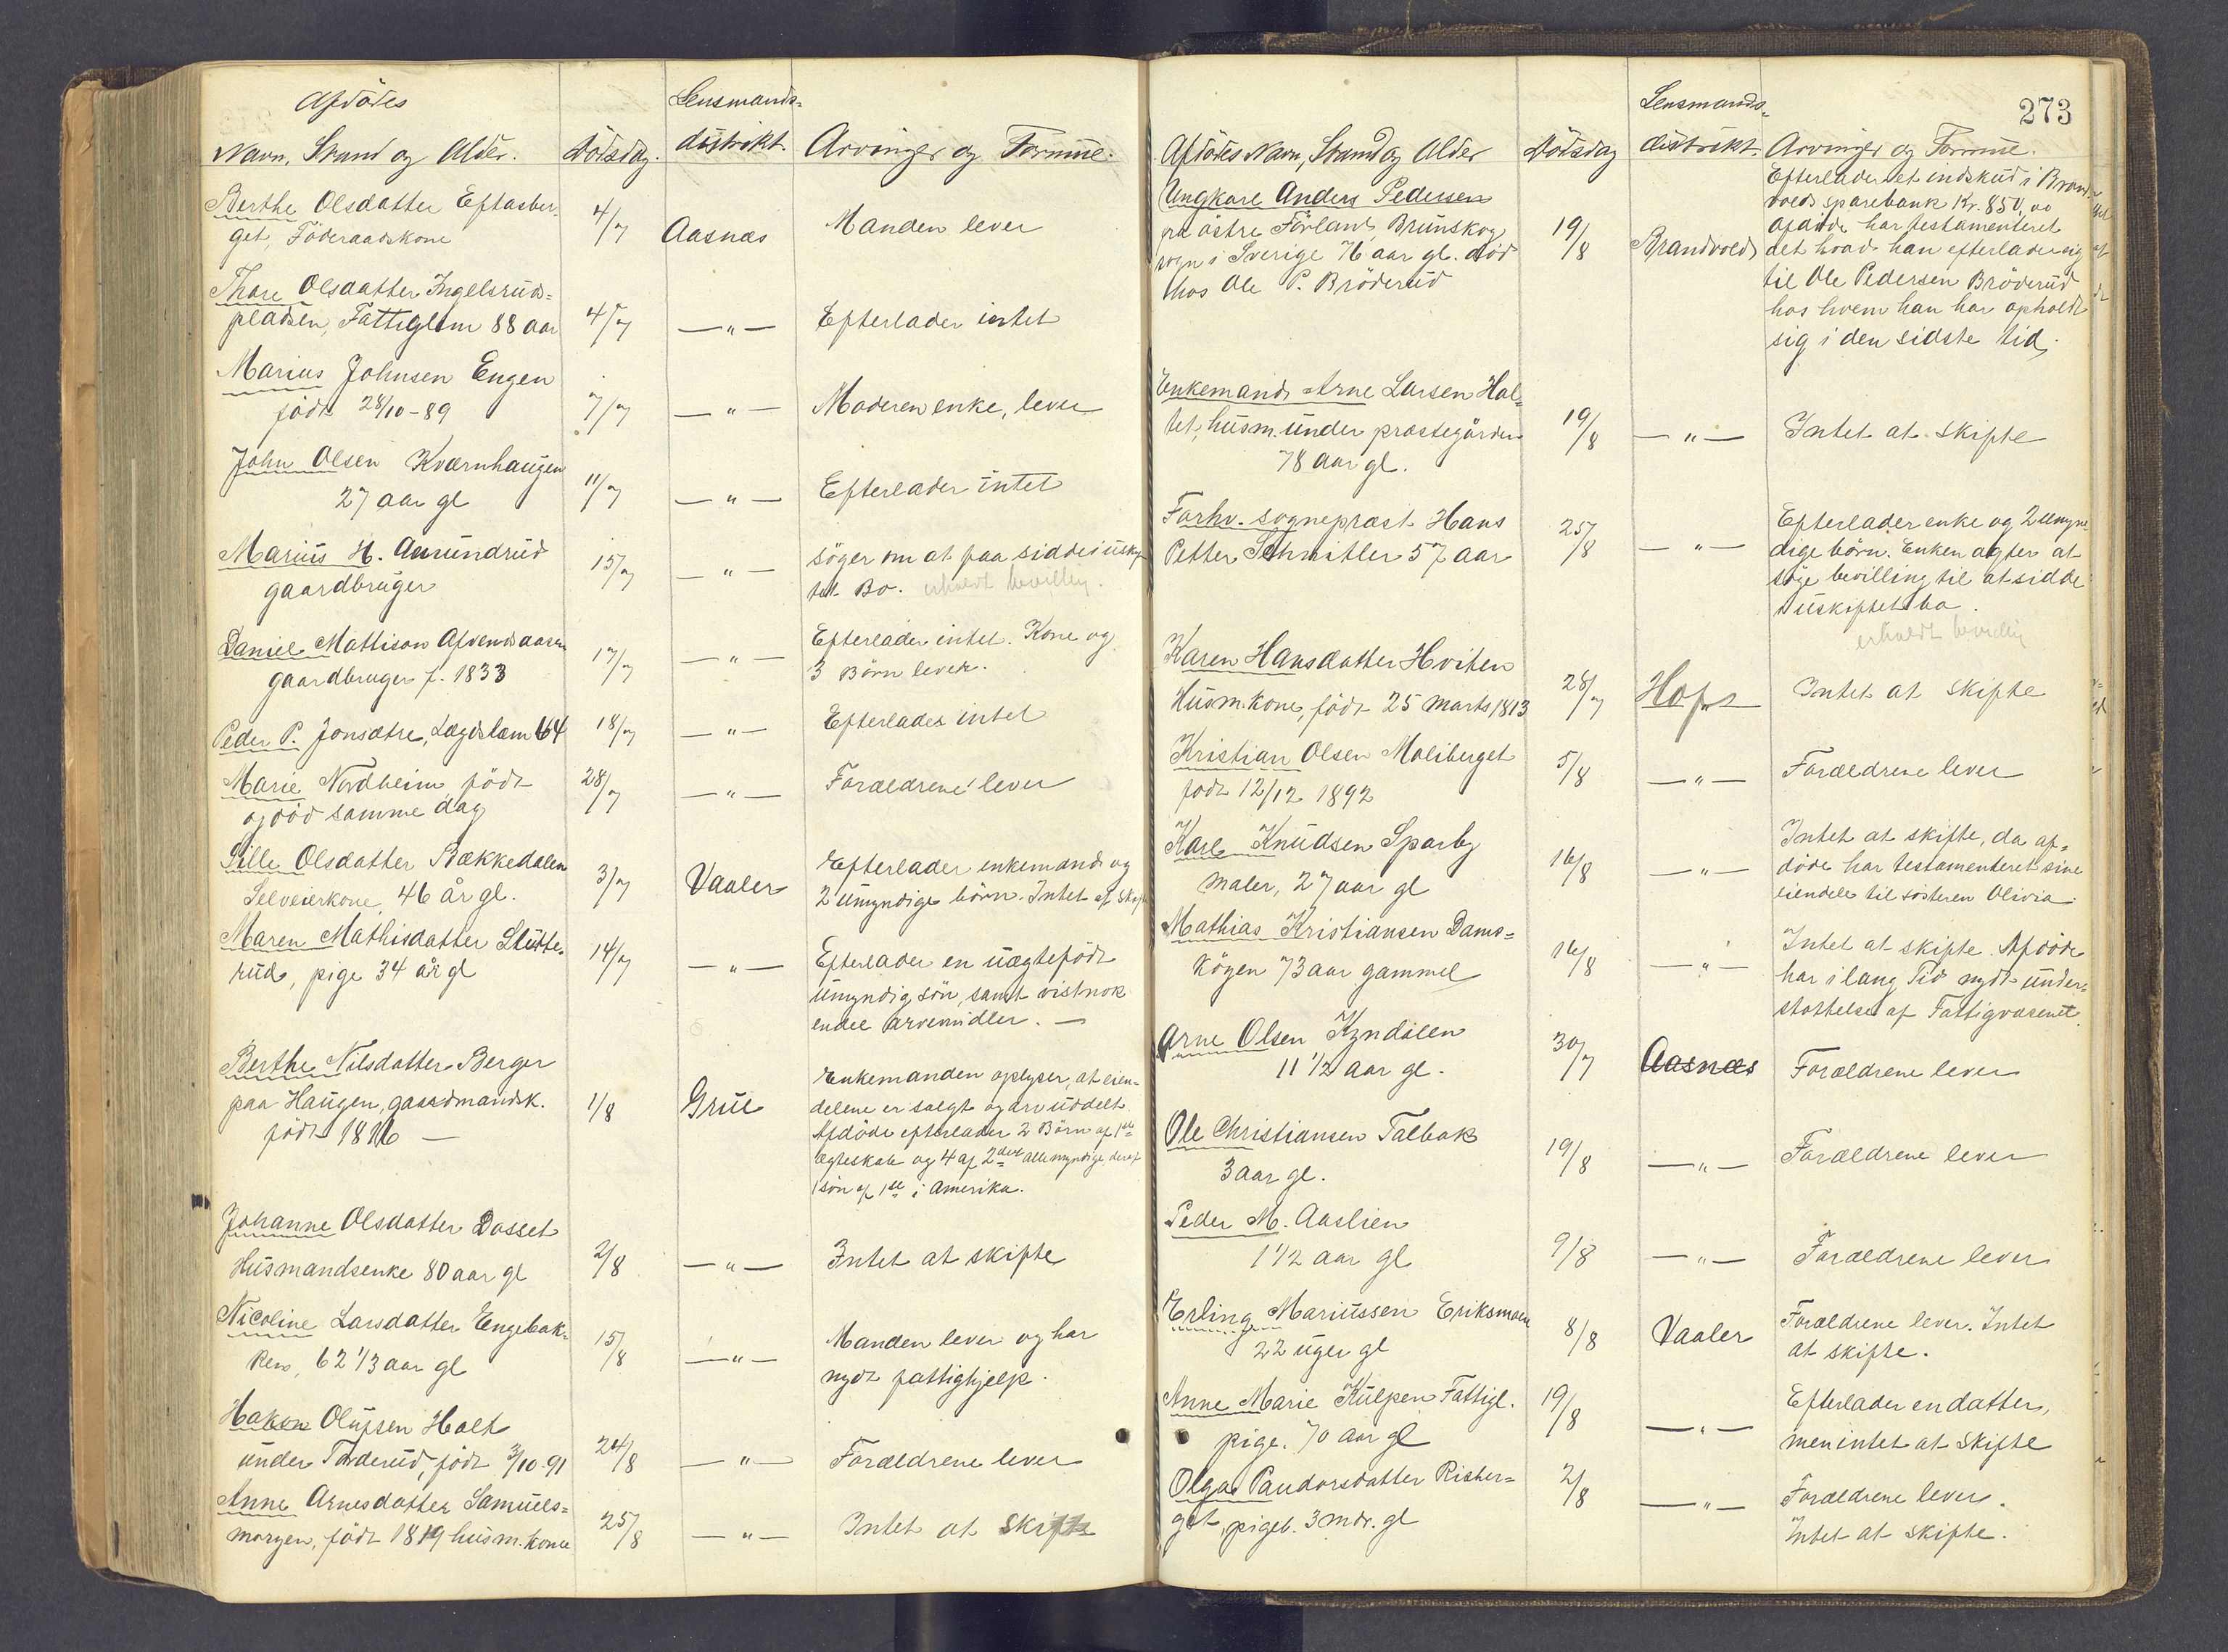 Afdødes
Navn, Stand og Alder.
Dödsdag.
Lensmands-
distrikt.
Arvinger og Formue.
Berthe Olsdatter Eftasber-
get, Föderaadskone
4/7
Aasnæs
Manden lever
Thore Olsdatter Ingelsruds-
pladsen, Fattiglem 88 aar
4/7
— " —
Efterlader intet
Marius Johnsen Engen
födt 28/10-89
7/7
— " —
Moderen enke, lever
John Olsen Kværnhaugen
27 aar gl
11/7
— " —
Efterlader intet
Marius H. Amundrud
gaardbruger
15/7
— " —
söger om at faa sidde i uskif-
tet Bo. erholdt bevilling.
Daniel Mattison Afvendsaasen
gaardbruger f. 1833
17/7
— " —
Efterlader intet. Kone og
3 Börn lever.
Peder P. Jonsætre, Lægdslem 64
18/7
— " —
Efterlader intet
Marie Nordheim, födt
og död samme dag
28/7
— " —
Forældrene lever
Sille Olsdatter Bækkedalen
Selveierkone, 46 år gl.
3/7
Vaaler
Efterlader enkemand og
2 umyndige börn. Intet at skifte
Maren Mathisdatter Slütte-
rud, pige 34 år gl
14/7
— " —
Efterlader en uægtefödt
umyndig sön, samt vistnok
endel arvemidler. —
Berthe Nilsdatter Berger
paa Haugen, gaardmandsk.
födt 1816 —
1/8
Grue
Enkemanden oplyser, at eien-
delene er solgt og arv uddelt
Afdöde efterlader 2 Börn af 1ste
ægteskab og 4 af 2det alle myndige deraf
1 sön af 1ste i Amerika.
Johanne Olsdatter Dosset
Husmandsenke 80 aar gl
2/8
— " —
Intet at skifte
Nicoline Larsdatter Engebak-
ken, 62 1/3 aar gl
15/8
— " —
Manden lever og har
nydt fattighjelp.
Hakon Olufsen Holt
under Torderud, födt 3/10-91
24/8
— " —
Forældrene lever
Anne Arnesdatter Samuels-
morgen, födt 1819 husm. kone
25/8
— " —
Intet at skifte
273
Afdödes Navn, Stand og Alder
Dödsdag
Lensmands-
distrikt.
Arvinger og Formue.
Ungkarl Anders Pedersen
fra östre Förland Brunskog
sogn i Sverige 76 aar gl. död
hos Ole P. Bröderud
19/8
Brandvold
Efterlader et indskud i Brand-
volds sparebank Kr. 850,00
Afdöde har testamenteret
det hvad han efterlader sig
til Ole Pedersen Bröderud
hos hvem han har opholdt
sig i den sidste tid.
Enkemand Arne Larsen Hol-
tet, husm. under præstegården
78 aar gl.
19/8
— " —
Intet at skifte
Forhv. sogneprest Hans
Petter Schnitler 57 aar
25/8
— " —
Efterlader enke og 2 umyn-
dige börn. Enken agter at
söge bevilling til at sidde
i uskiftet bo.
erholdt bevilling
Karen Hansdatter Hviten
Husm.kone, födt 25 marts 1813
28/7
Hof
Intet at skifte
Kristian Olsen Moliberget
födt 12/12 1892
5/8
— " —
Forældrene lever
Karl Knudsen Sparby
maler, 27 aar gl
16/8
— " —
Intet at skifte, da af-
döde har testamenteret sine
eiendele til sösteren Olivia
Mathias Kristiansen Dams-
kögen 73 aar gammel
16/8
— " —
Intet at skifte. Afdöde
har i lang Tid nydt under-
stöttelse af Fattigvæsenet.
Arne Olsen Kyndölen
11 1/2 aar gl.
30/7
Aasnæs
Forældrene lever
Ole Christiansen Talbak
3 aar gl.
19/8
— " —
Forældrene lever
Peder M. Aaslien
1 1/2 aar gl
9/8
— " —
Forældrene lever
Erling Mariussen Eriksmoen
22 uger gl
8/8
Vaaler
Forældrene lever. Intet
at skifte.
Anne Marie Kulpen Fattigl.
pige. 70 aar gl
19/8
— " —
Efterlader en datter,
men intet at skifte
Olga Paudorsdatter Risber-
get, pigeb. 3 mdr. gl
2/8
— " —
Forældrene lever.
Intet at skifte.